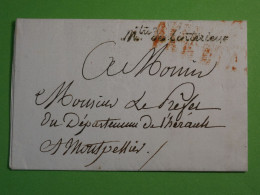 Mtre de l'intérieur
A Monsieur
Monsieur Le Préfet
du Département de l'hérault
A Montpellier